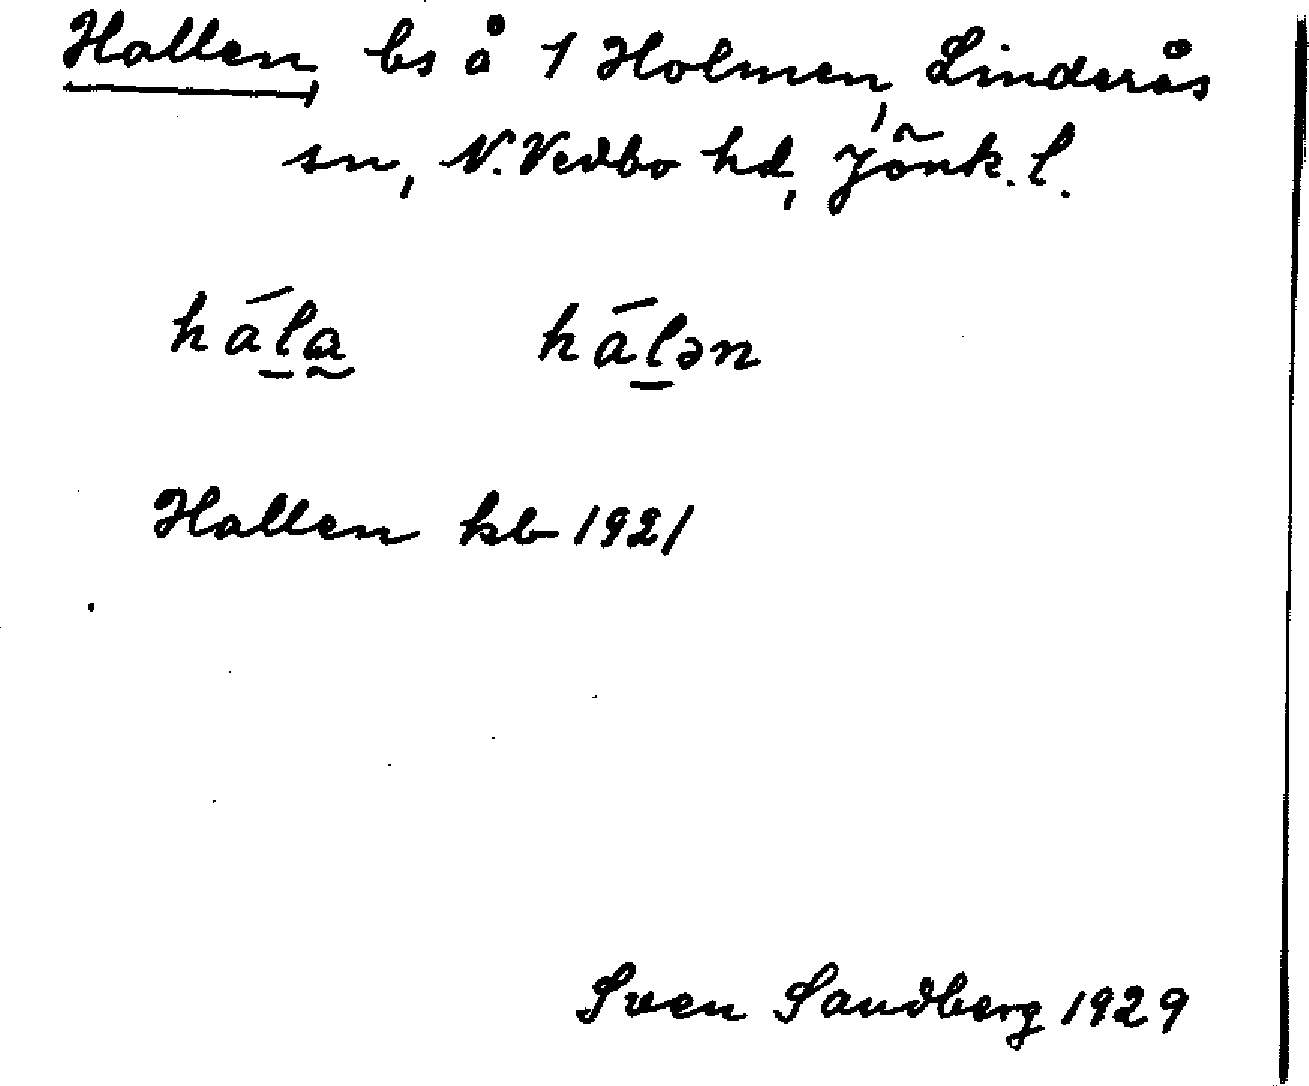 Hallen, bs å 1 Holmen, Linderås
sn, N. Vedbo hd, Jönk. l.
hála̰ hálən
Hallen kb 1921
Sven Sandberg 1929